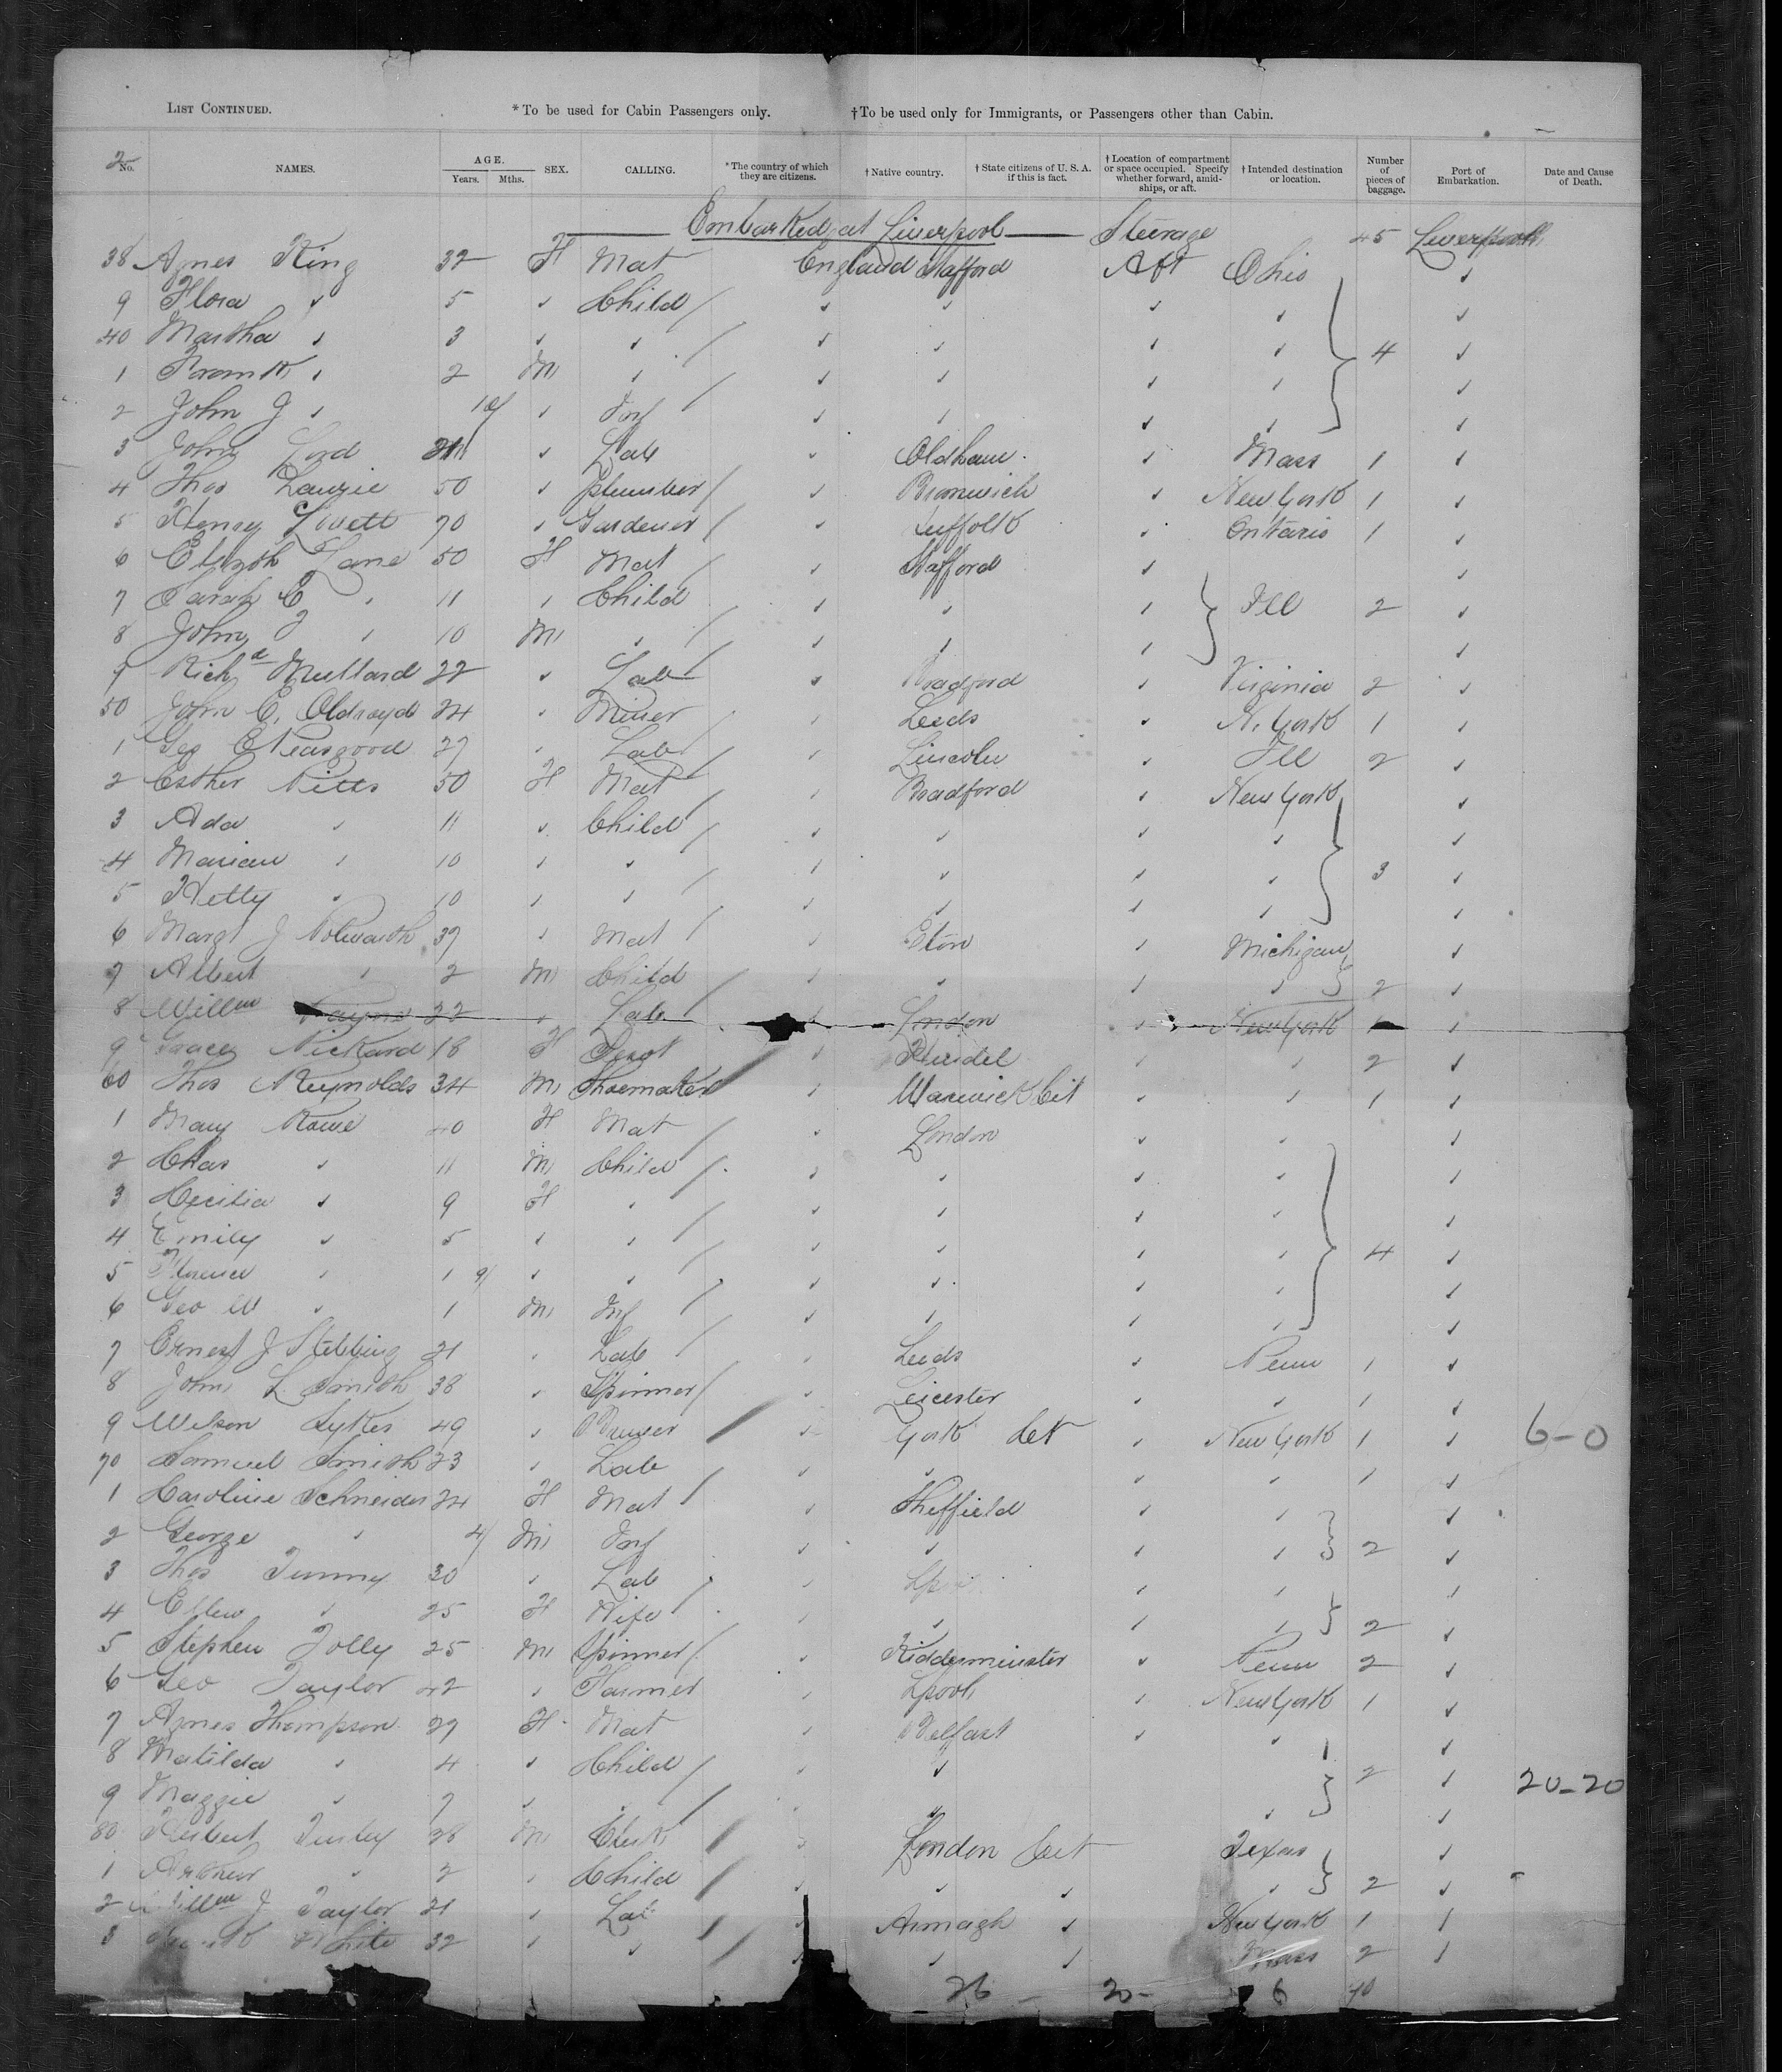 LIST CONTINUED. * To be used for Cabin Passengers only. † To be used only for Immigrants, or Passengers other than Cabin.
2
No. NAMES. AGE. Years. Mths. SEX. CALLING. * The country of which they are citizens. † Native country. † State citizens of U. S. A. if this is fact. † Location of compartment or space occupied. Specify whether forward, amidships, or aft. † Intended destination or location. Number of pieces of baggage. Port of Embarkation. Date and Cause of Death.
Embarked at Liverpool Steerage 45 Liverpool
38 Agnes King 32 F Mat England Stafford Aft Ohio ✓
9 Flora ✓ 5 ✓ Child / ✓ ✓ ✓ ✓ ✓
40 Martha ✓ 3 ✓ ✓ / ✓ ✓ ✓ ✓ 4 ✓
1 Frank ✓ 2 M ✓ / ✓ ✓ ✓ ✓ ✓
2 John J ✓ 10/ ✓ Inf ✓ ✓ ✓ ✓ ✓
3 John Lord ✓ Lab ✓ Oldham ✓ Mass 1 ✓
4 Thos 50 ✓ Plumber / ✓ Bromwich ✓ New York 1 ✓
5 Henry Lovett 70 ✓ Gardener / ✓ Suffolk ✓ Ontario 1 ✓
6 Elizth Lane 50 F Mat / ✓ Stafford ✓ ✓
7 Sarah E ✓ 11 ✓ Child / ✓ ✓ ✓ Ill 2 ✓
8 John J ✓ 10 M ✓ / ✓ ✓ ✓ ✓
9 Richd Mullard 22 ✓ Lab / ✓ Bradford ✓ Virginia 2 ✓
50 John E. Oldroyd 24 ✓ Miner ✓ Leeds ✓ N. York 1 ✓
1 Geo E Peasgood 27 ✓ Lab / ✓ Lincoln ✓ Ill 2 ✓
2 Esther Pitts 50 F Mat / ✓ Bradford ✓ New York ✓
3 Ada ✓ 11 ✓ Child / ✓ ✓ ✓ ✓ ✓
4 Marian ✓ 10 ✓ ✓ / ✓ ✓ ✓ ✓ 3 ✓
5 Hetty ✓ 10 ✓ ✓ / ✓ ✓ ✓ ✓ ✓
6 Margt J Polwarth 37 ✓ Mat / ✓ Eton ✓ Michigan ✓
7 Albert ✓ 2 M Child / ✓ ✓ ✓ ✓ 2 ✓
8 Willm Payne 22 ✓ Lab ✓ London ✓ New York 1 ✓
9 Grace Pickard 18 F Servt / ✓ ✓ ✓ 2 ✓
60 Thos Reynolds 34 M Shoemaker / ✓ Warwick Cit ✓ ✓ 1 ✓
1 Mary Rowe 40 F Mat / ✓ London ✓ ✓ ✓
2 Chas ✓ 11 M Child / ✓ ✓ ✓ ✓ ✓
3 Cecilia ✓ 9 F ✓ / ✓ ✓ ✓ ✓ ✓
4 Emily ✓ 5 ✓ ✓ / ✓ ✓ ✓ ✓ 4 ✓
5 Florence ✓ 1 9/ ✓ ✓ / ✓ ✓ ✓ ✓ ✓
6 Geo W ✓ 1 M Inf / ✓ ✓ ✓ ✓ ✓
7 Ernest J Stebbing 21 ✓ Lab / ✓ Leeds ✓ Penn 1 ✓
8 John L Smith 38 ✓ Spinner / ✓ Leicester ✓ ✓ 1 ✓
9 Wilson Sykes 49 ✓ / ✓ York Cit ✓ New York 1 ✓ 6-0
70 Samuel Smith 23 ✓ Lab ✓ ✓ ✓ ✓ 1 ✓
1 Caroline Schneider 24 F Mat / ✓ Sheffield ✓ ✓ ✓
2 George ✓ 4/ M Inf ✓ ✓ ✓ ✓ 2 ✓
3 Thos Tunny 30 ✓ Lab ✓ Lpool ✓ ✓ ✓
4 Ellen ✓ 25 F Wife / ✓ ✓ ✓ ✓ 2 ✓
5 Stephen Jolly 25 M Spinner / ✓ Kidderminster ✓ Penn 2 ✓
6 Geo Taylor 42 ✓ Farmer ✓ Lpool ✓ New York 1 ✓
7 Agnes Thompson 27 F Mat ✓ Belfast ✓ ✓ ✓
8 Matilda ✓ 4 ✓ Child / ✓ ✓ 2 ✓ 20-20
9 Maggie ✓ 7 ✓ ✓ / ✓ ✓ ✓ ✓
80 Herbert 26 M Clerk / ✓ London Cit Texas ✓
1 Arthur ✓ 2 ✓ Child / ✓ ✓ ✓ ✓ 2 ✓
2 Willm J Taylor 21 ✓ Lab / ✓ Armagh ✓ New York 1 ✓
3 White 32 ✓ ✓ / ✓ ✓ ✓ Mass 2 ✓
26 - 20 - 6 70